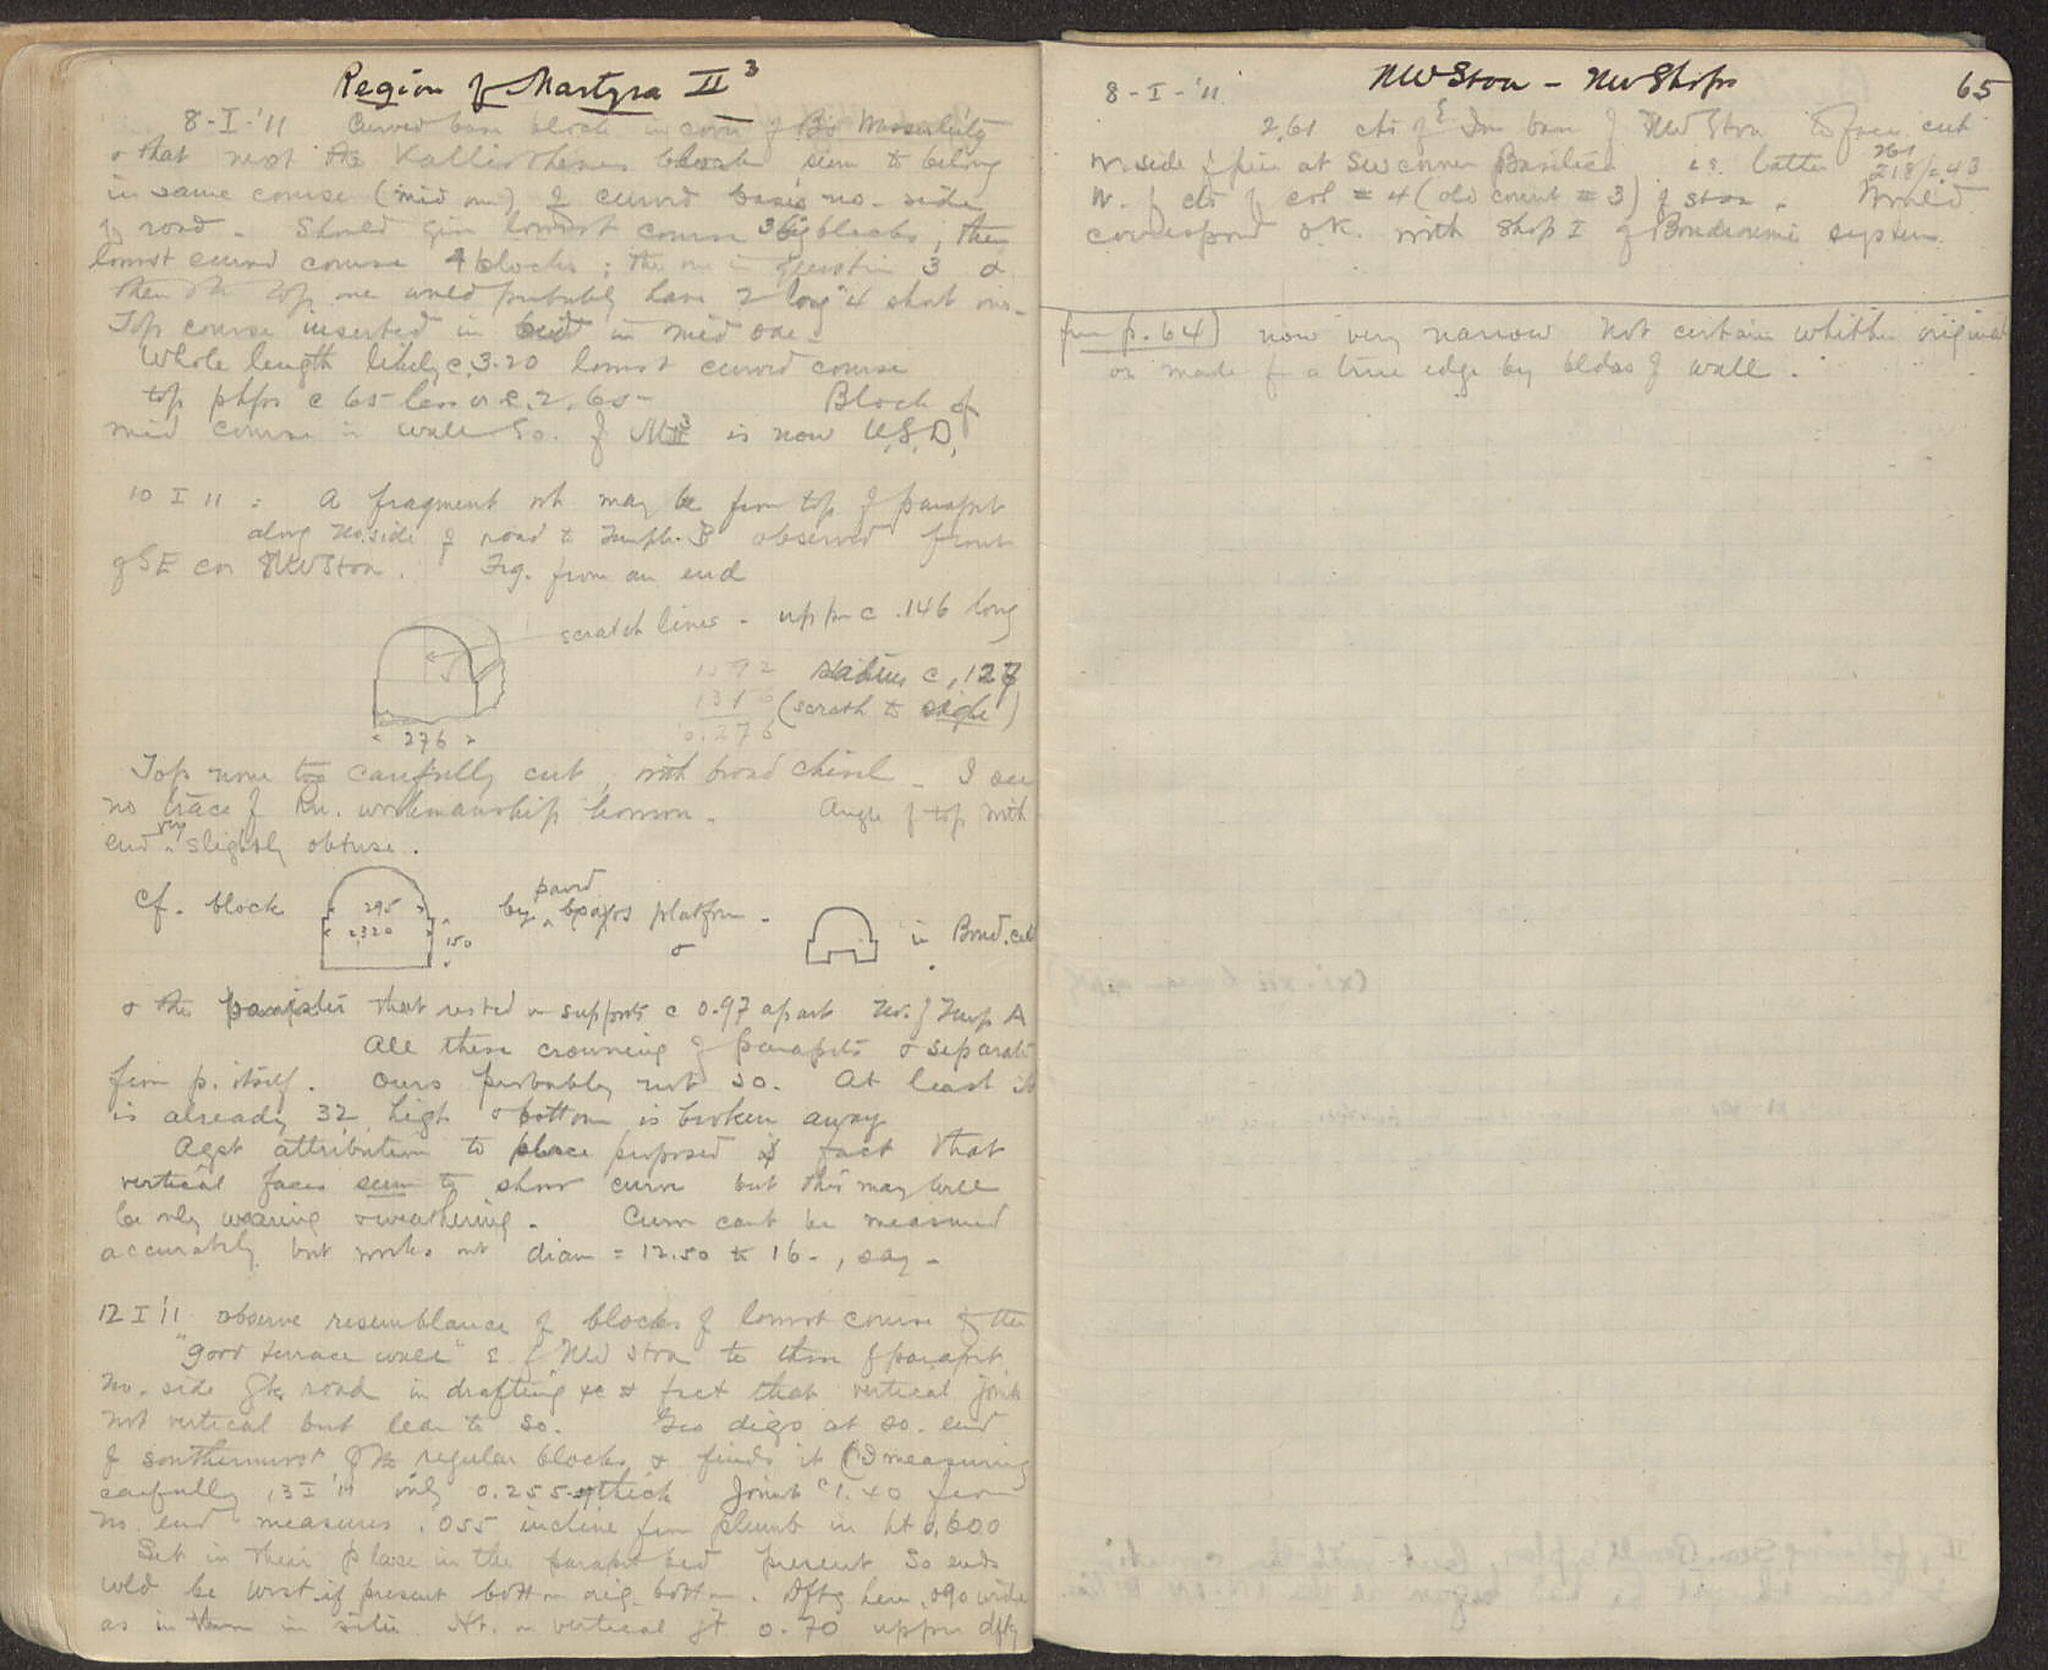 Region of Martyra II³
8-I-'11 Curved base block in corner of
& that next the Kallisthenes block seem to belong
in same course (mid one) of curved basis no. side
of road. Should give lowest course 3 big blocks; then
lowest curved course 4 blocks; the one in question 3 &
then the top one would probably have 2 long 4 short ones.
Top course inserted in bed in mid one.
Whole length likely c. 3.20 lowest curved course
top c 65 less or c. 2.60 - Block of
mid course in wall So. of MII³ is now U.S.D,
10 I 11 : A fragment wh may be from top of parapet
along No. side of road to Temple B observed front
of SE cor NW Stoa. Frg. from an end
scratch lines - upper c .146 long
1592 radius c .127
131 (scratch to edge)
0.276
276
Top none too carefully cut, with broad chisel - I see
no trace of Rn. workmanship hereon. Angle of top with
end very slightly obtuse.
Cf. block 295 .320 150 by paved platform - & in Boud. cell
& the parapets that rested on supports c 0.97 apart No. of Temp A
All these crowning of parapets & separate
from p. itself. Ours probably not so. At least it
is already 32 high & bottom is broken away
Agst attribution to place proposed is fact that
vertical faces seem to show curve but this may well
be only wearing & weathering. Curve cant be measured
accurately but works out diam = 12.50 to 16-, say -
12 I '11 observe resemblance of blocks of lowest course of the
"good terrace wall" E of NW Stoa to those of parapet
No. side of the road in drafting &c & fact that vertical joints
not vertical but lean to So. Geo digs at so. end
of southernmost of the regular blocks & finds it (I measuring
carefully 13 I '11 only 0.255 thick Joint c 1.40 from
no. end measures .055 incline from plumb in ht 0.600
Set in their place in the parapet bed present So ends
wld be West if present bottom orig. bottom. Dftg here .090 wide
as in them in situ. Ht. on vertical jt 0.70 upper dftg
8-I-'11 NW Stoa - NW Shops 65
2.61 ctr of E Inn base of NW Stoa to face cut
W. side of pier at SW corner Basilica is latter 261 218 / = 43
W. of ctr of col #4 (old count #3) of stoa. Would
correspond O.K. with Shop I of Boudroumi system.
from p. 64) now very narrow Not certain whether original
or made for a true edge by bldrs of wall.